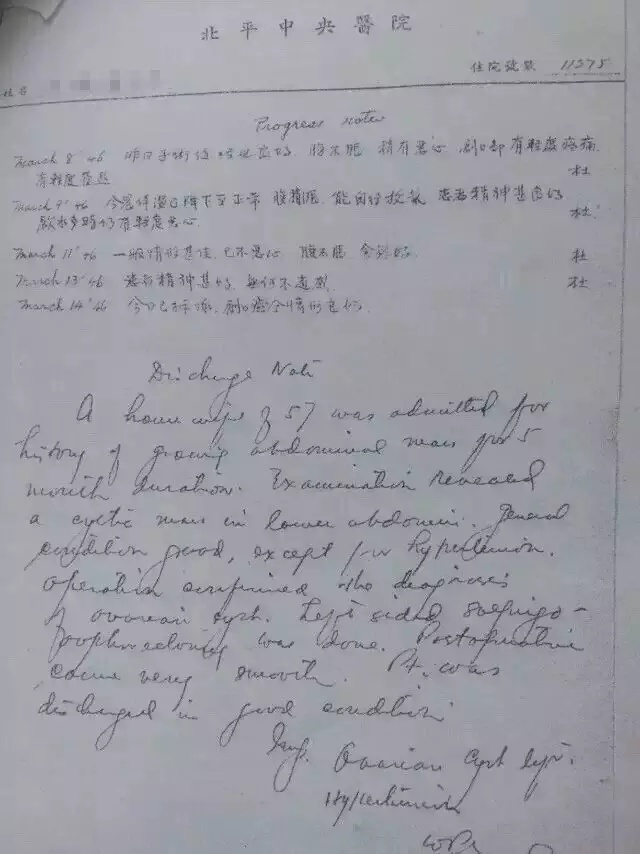 北平中央醫院
姓名
住院號數 11275
Progress notes
March 8 '46 昨日手術後 腹不脹 稍有惡心 創口部有輕度疼痛
杜
March 9 '46 今晨体温已降下至正常 腹稍脹 能自 患者精神甚良好
飲水多時仍有輕度惡心
杜
March 11 '46 一般情形甚佳 已不惡心 腹不脹 食
杜
March 13 '46 患者精神甚好 無何不適感
杜
March 14 '46 今日已拆線 創口癒合情形良好
Discharge Note
A housewife of 57 was admitted for
history of growing abdominal mass for 5
month duration. Examination revealed
a cystic mass in lower abdomin. General
condition good, except for hypertension.
Operation confirmed the diagnosis
of ovarian cyst. Left sided salpingo-
oophorectomy was done. Postoperative
course very smooth. Pt. was
discharged in good condition.
Imp. Ovarian Cyst left.
Hypertension